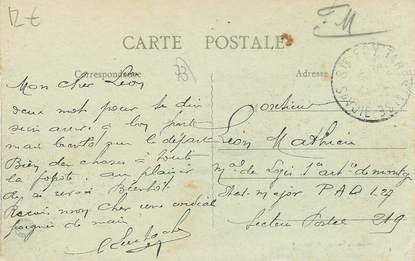 12€
F.M
CARTE POSTALE
Correspondance
Adresse
B
Mon cher Léon
deux mot pour te dire
suis arrivé à bon port
mais bientôt le départ
Bien des choses à toute
la popote. au plaisir
de se revoir Bientôt.
Reçois mon cher une cordial
poignée de main
Monsieur
Léon Mathieu
mal de Logis 1e art de montagne
Etat major P A D 1.27
Secteur Postal 219